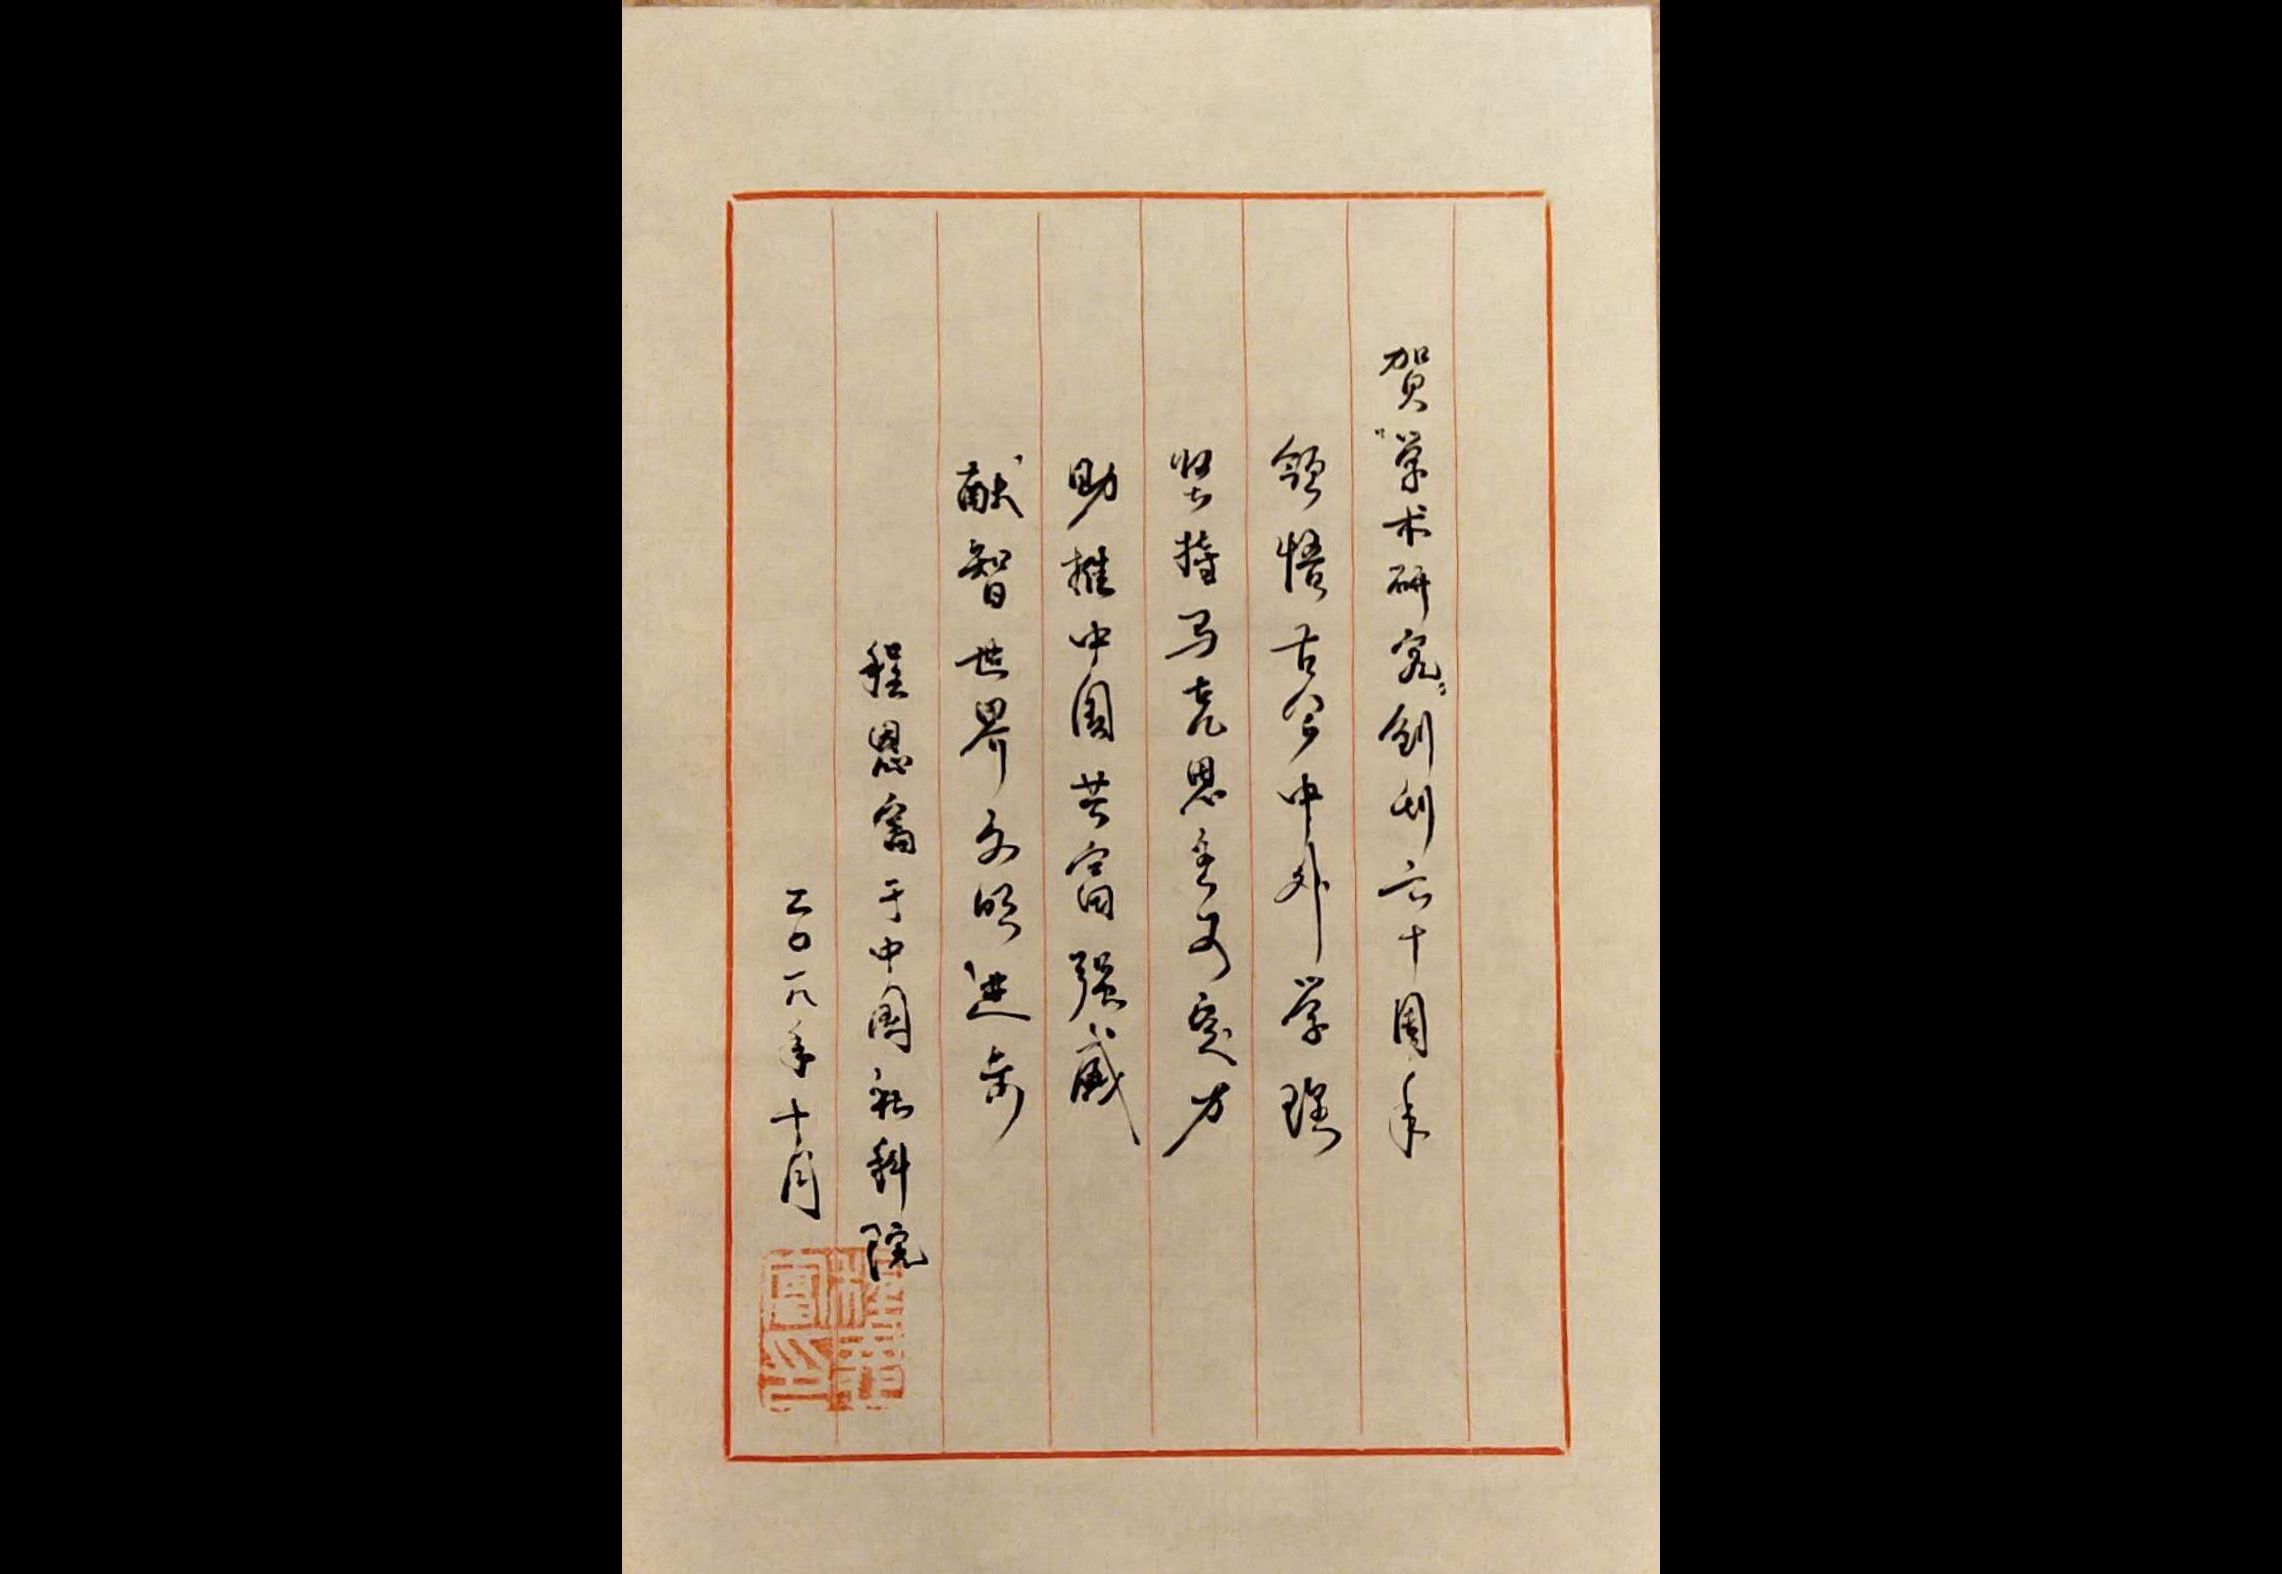 贺“学术研究”创刊六十周年
领悟古今中外学理
坚持马克思主义定力
助推中国共富强盛
献智世界文明进步
程恩富于中国社科院
二〇一八年十月
程恩富印